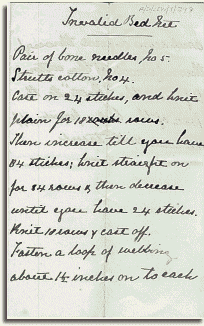 Invalid Bed Net
Pair of bone needles, No 5.
Strutts cotton, No 4.
Cast on 24 stiches, and knit
plain for 18 rows.
Then increase till you have
84 stiches; knit straight on
for 84 rows & then decrease
until you have 24 stiches.
Knit 18 rows & cast off.
Fasten a loop of webbing
about 14 inches on to each